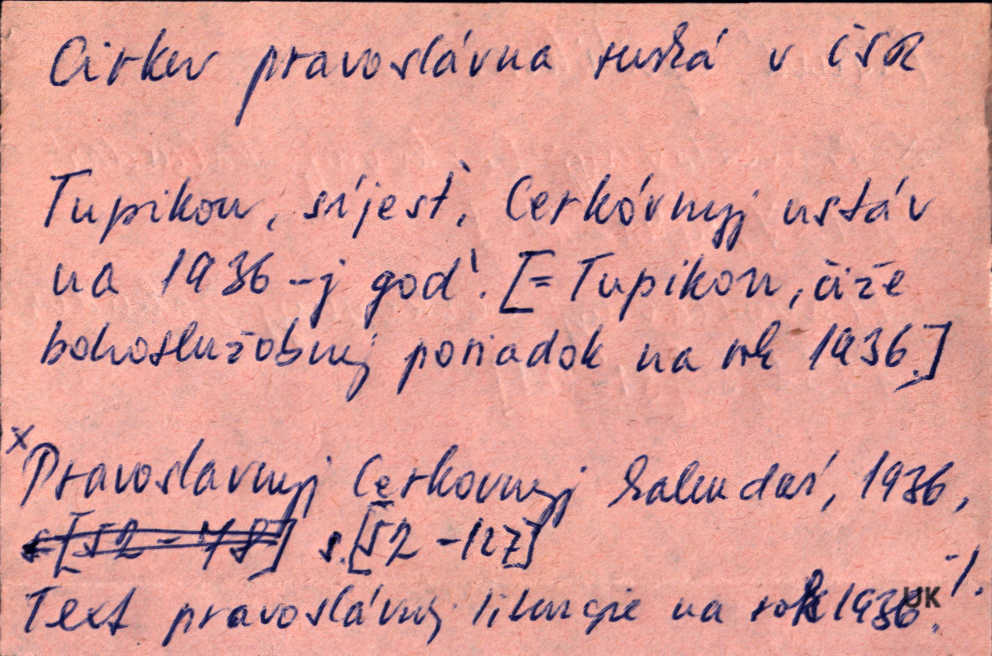 Cirkev pravoslávna ruská v ČSR
Tupikon, síjest', Cerkóvnyj ustáv
na 1936-j god'. [= Tupikon, čiže
bohoslužobný poriadok na rok 1936.]
x Pravoslavnyj Cerkovnyj kalendař, 1936,
s. [52 - 78] s. [52 - 127]
Text pravoslávnej liturgie na rok 1936. -/.
UK